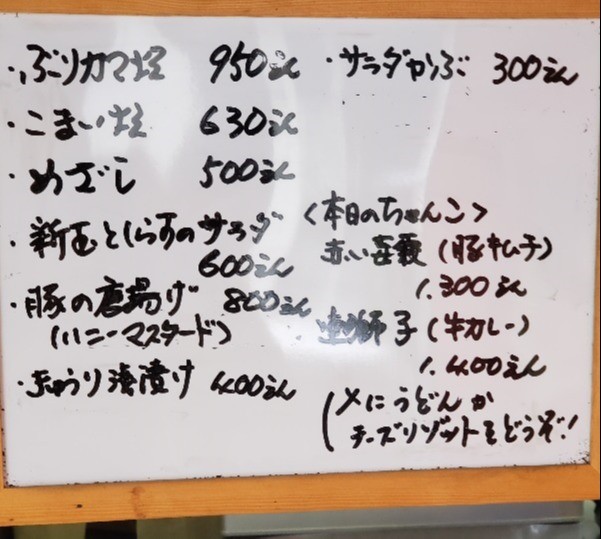 ・ぶりカマ焼 950えん
・こまい焼 630えん
・めざし 500えん
・新玉としらすのサラダ
600えん
・豚の唐揚げ 800えん
(ハニーマスタード)
・きゅうり浅漬け 400えん
・サラダかぶ 300えん
<本日のちゃんこ>
赤い(豚キムチ)
1.300えん
連獅子(牛カレー)
1.400えん
(〆にうどんか
チーズリゾットをどうぞ!